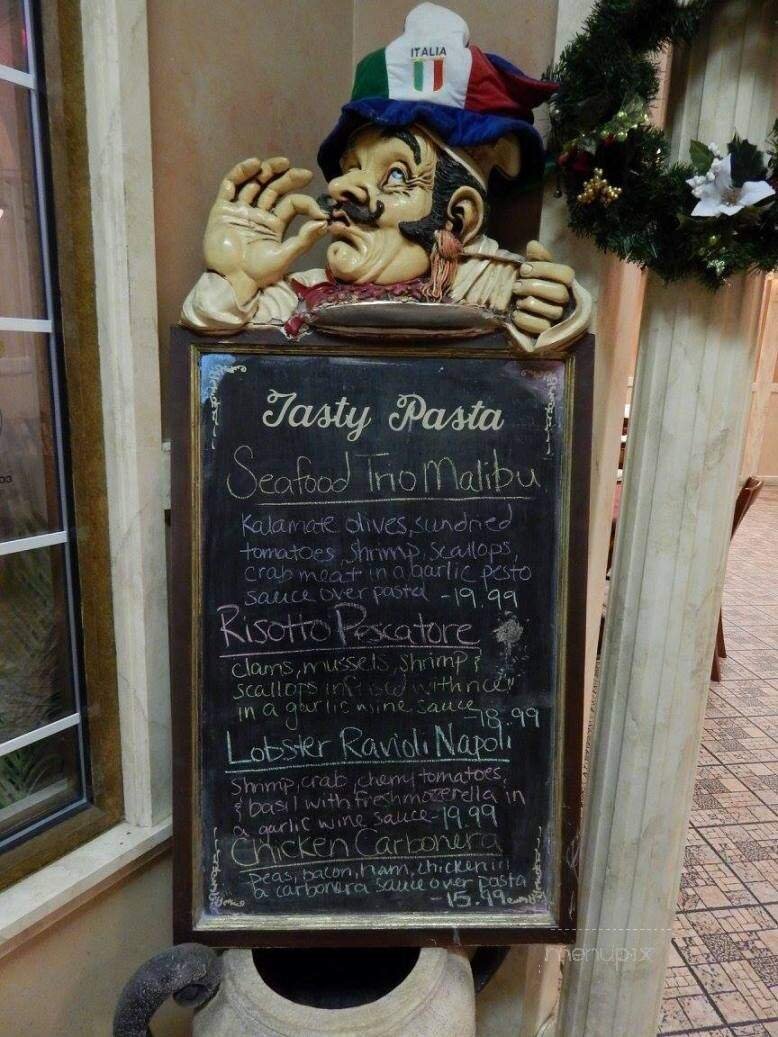 ITALIA
Tasty Pasta
Seafood Trio Malibu
Kalamate olives, sundried
tomatoes, shrimp, scallops,
crab meat in a garlic pesto
sauce over pasta -19.99
Risotto Pescatore
clams, mussels, shrimp &
scallops infused with rice
in a garlic wine sauce -18.99
Lobster Ravioli Napoli
Shrimp, crab, cherry tomatoes,
& basil with fresh mozerella in
a garlic wine sauce -19.99
Chicken Carbonera
Peas, bacon, ham, chicken in
a carbonara sauce over pasta
-15.99
menupix